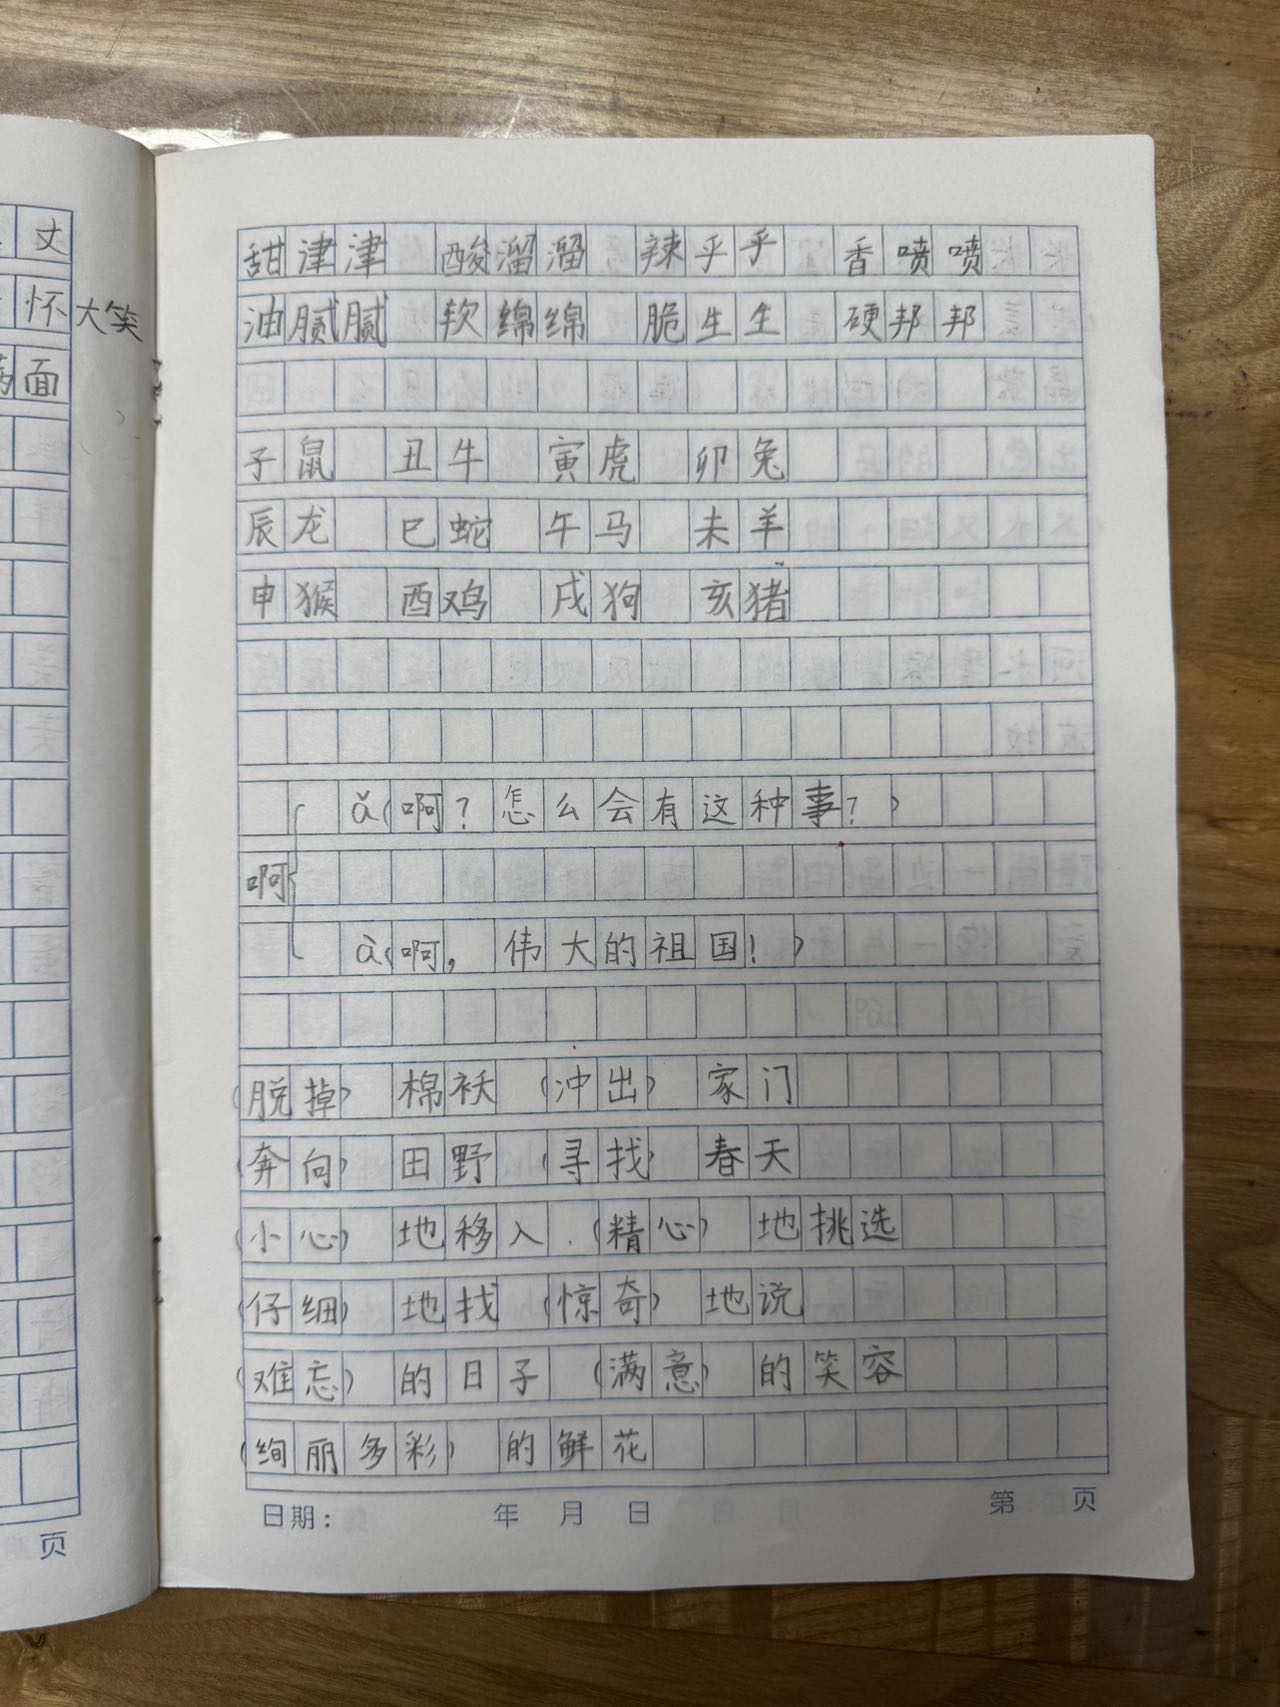 丈
怀大笑
面
甜津津 酸溜溜 辣乎乎 香喷喷
油腻腻 软绵绵 脆生生 硬邦邦
子鼠 丑牛 寅虎 卯兔
辰龙 巳蛇 午马 未羊
申猴 酉鸡 戌狗 亥猪
ǎ(啊?怎么会有这种事?)
啊{
à(啊,伟大的祖国!)
(脱掉) 棉袄 (冲出) 家门
(奔向) 田野 (寻找) 春天
(小心) 地移入 (精心) 地挑选
(仔细) 地找 (惊奇) 地说
(难忘) 的日子 (满意) 的笑容
(绚丽多彩) 的鲜花
日期: 年 月 日 第 页
页